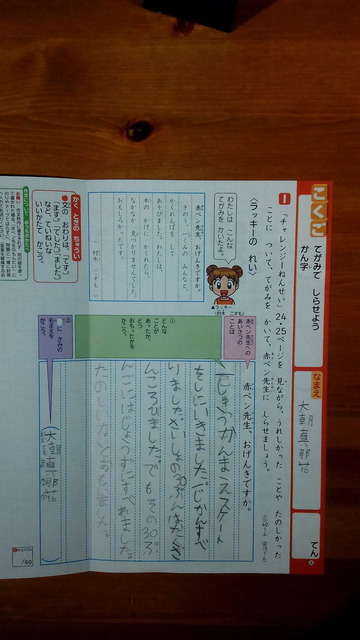 こくご
てがみで しらせよう
かん字
なまえ
大朝 真那花
てん
1
「チャレンジ一ねんせい」24・25ページを 見ながら、うれしかった ことや たのしかった
ことに ついて、てがみを かいて、赤ペン先生に しらせましょう。
〈ラッキーの れい〉
わたしは こんな
てがみを かいたよ。
ラッキー
赤ペン先生、おげんきですか。
きのう、
かくれんぼを して
あそびました。わたしは、
木の かげに かくれたら、
なかなか 見つかりませんでした。
おもしろかったです。
かく ときの ちゅうい
●文の おわりは、「です。」
「ます。」「でした。」「ました。」
など、ていねいな
いいかたで かこう。
赤ペン先生への
あいさつの
ことば
①
どんな
ことが
あったか、
どう
おもったかを
かこう。
きみの
名まえを
かこう。
赤ペン先生、おげんきですか。
しゅうかんまえスケート
をしにいきました。
りました。さいしょの30ぷんは
ころびました。でも、その30ぷん
ごにはじょうずにすべれました。
たのしいなとおもいました。
大朝真那花
/50